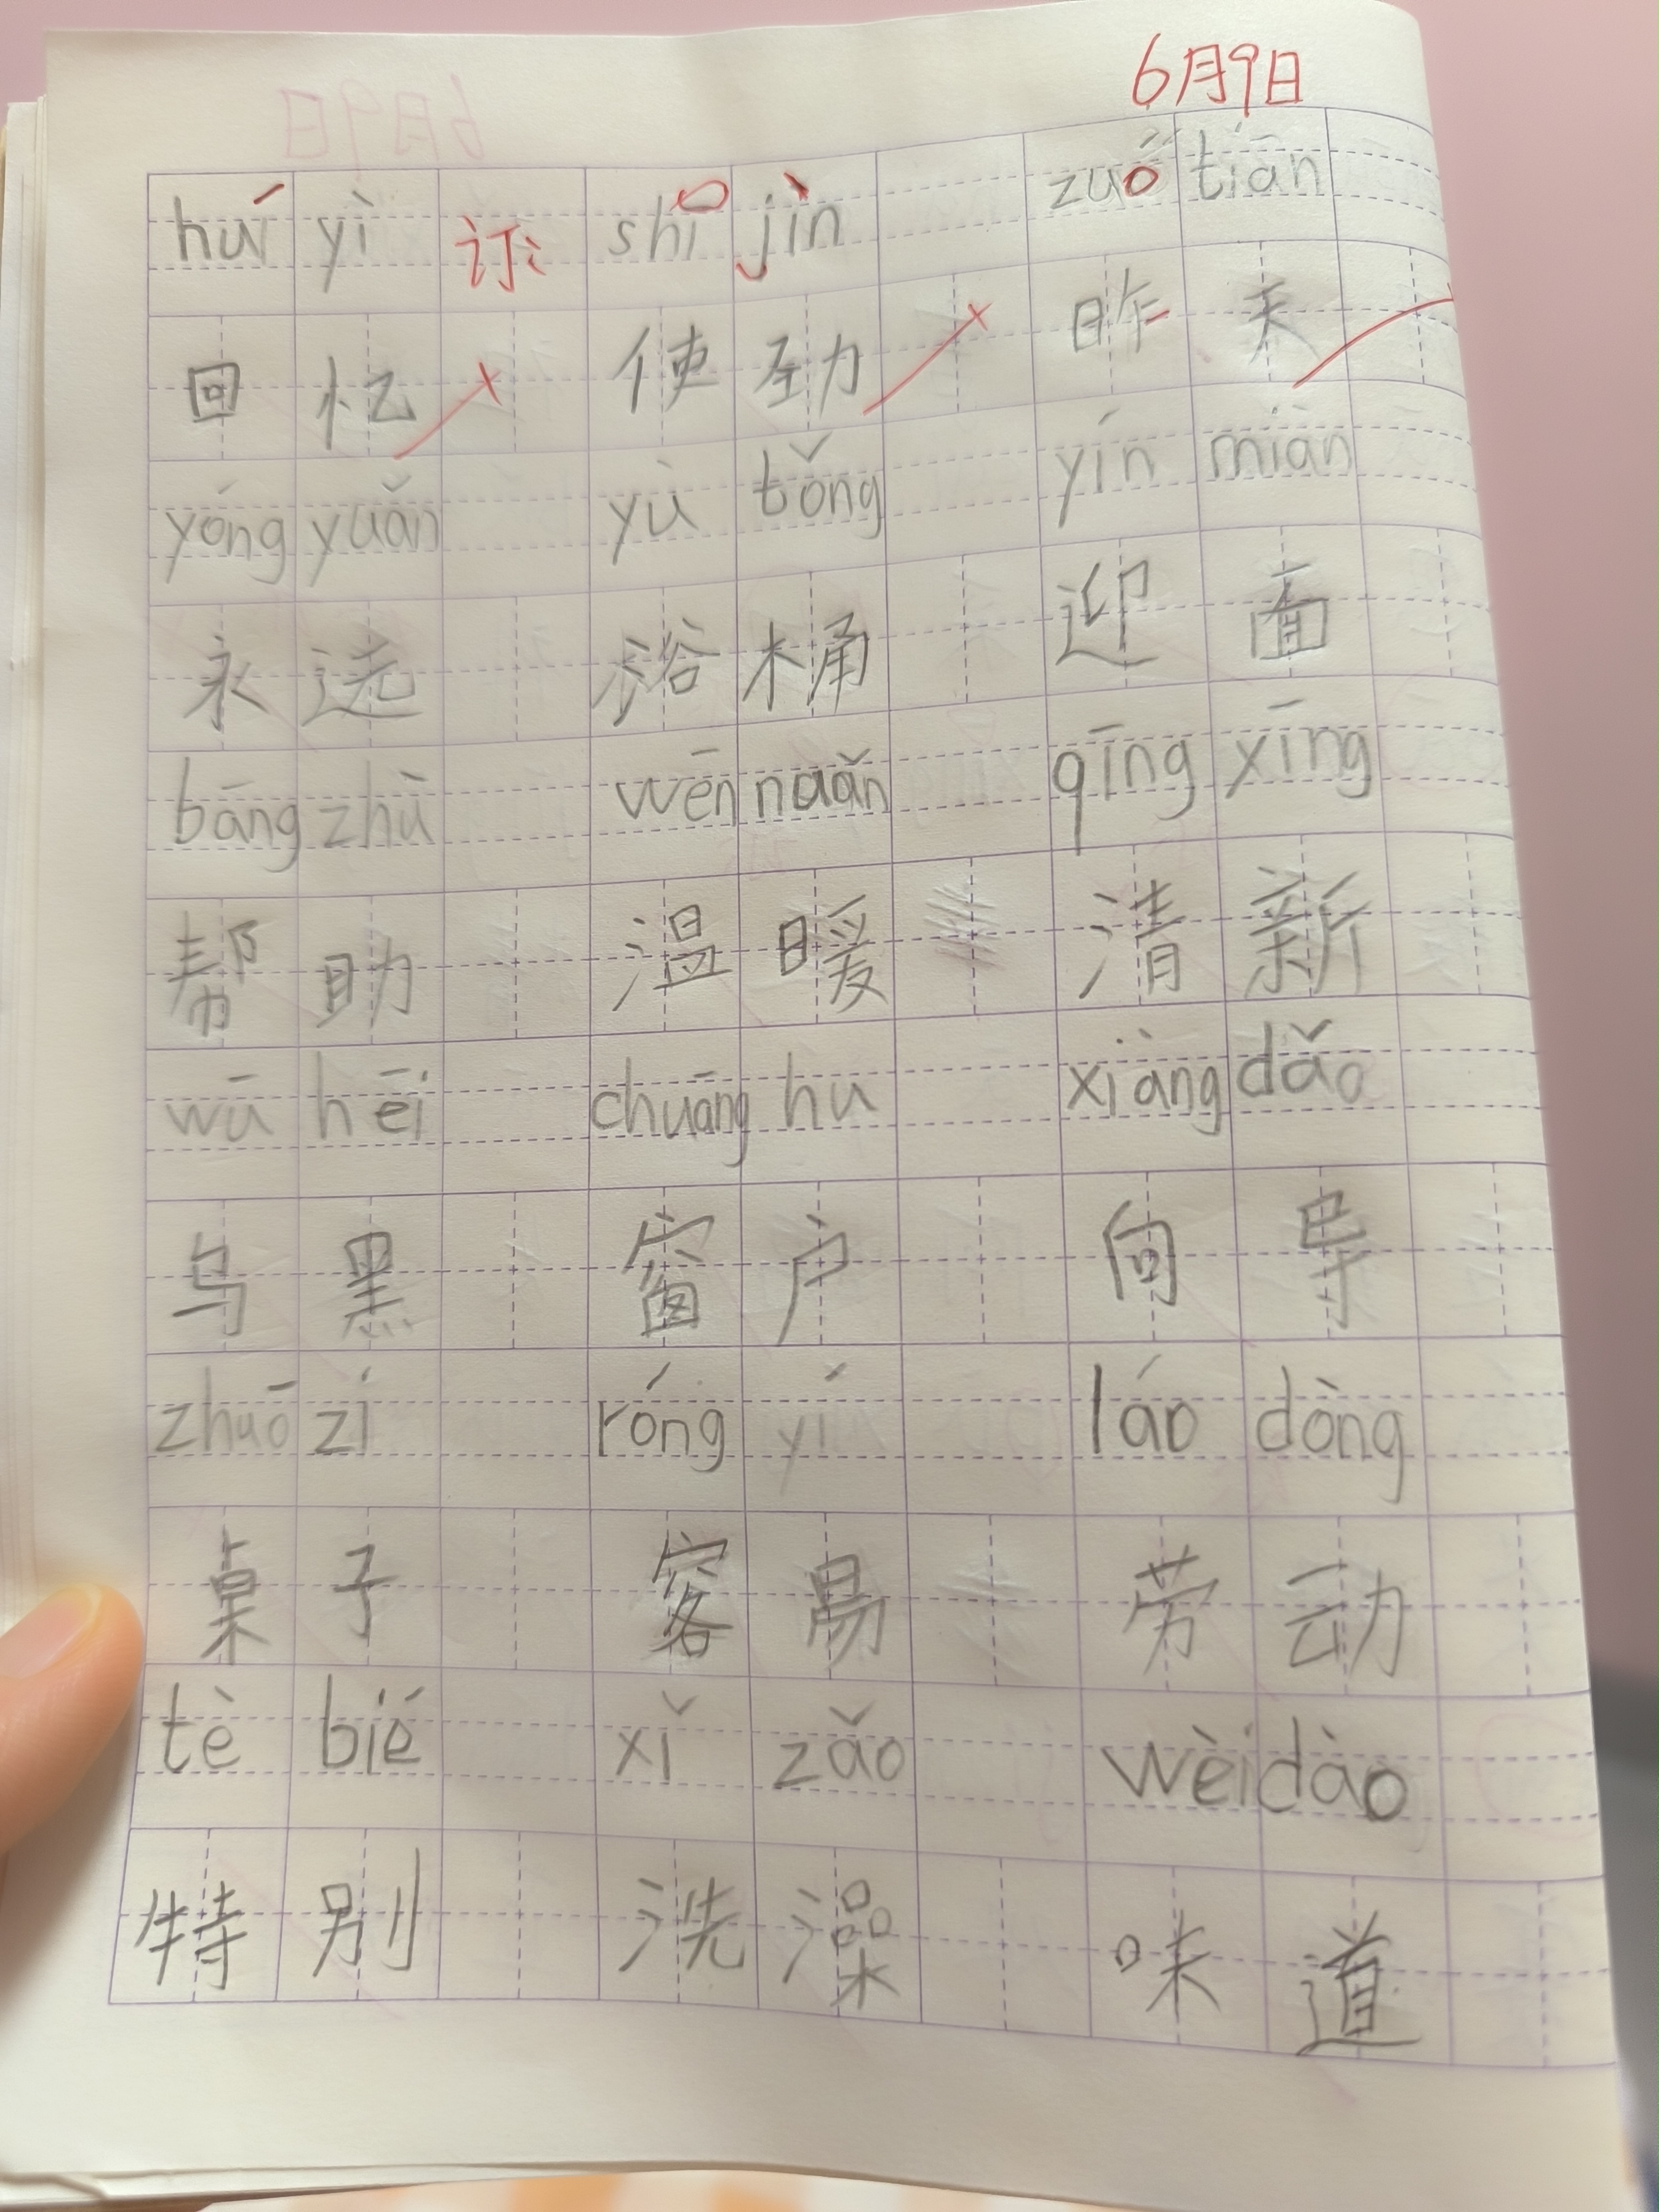 6月9日
huí yì 订: shǐ jìn zuó tiān
回忆 使劲 昨天
yóng yuǎn yù tǒng yín miàn
永远 浴桶 迎面
bāng zhù wēn nuǎn qīng xīng
帮助 温暖 清新
wū hēi chuāng hu xiàng dǎo
乌黑 窗户 向导
zhuō zi róng yí láo dòng
桌子 容易 劳动
tè bié xǐ zǎo wèi dào
特别 洗澡 味道